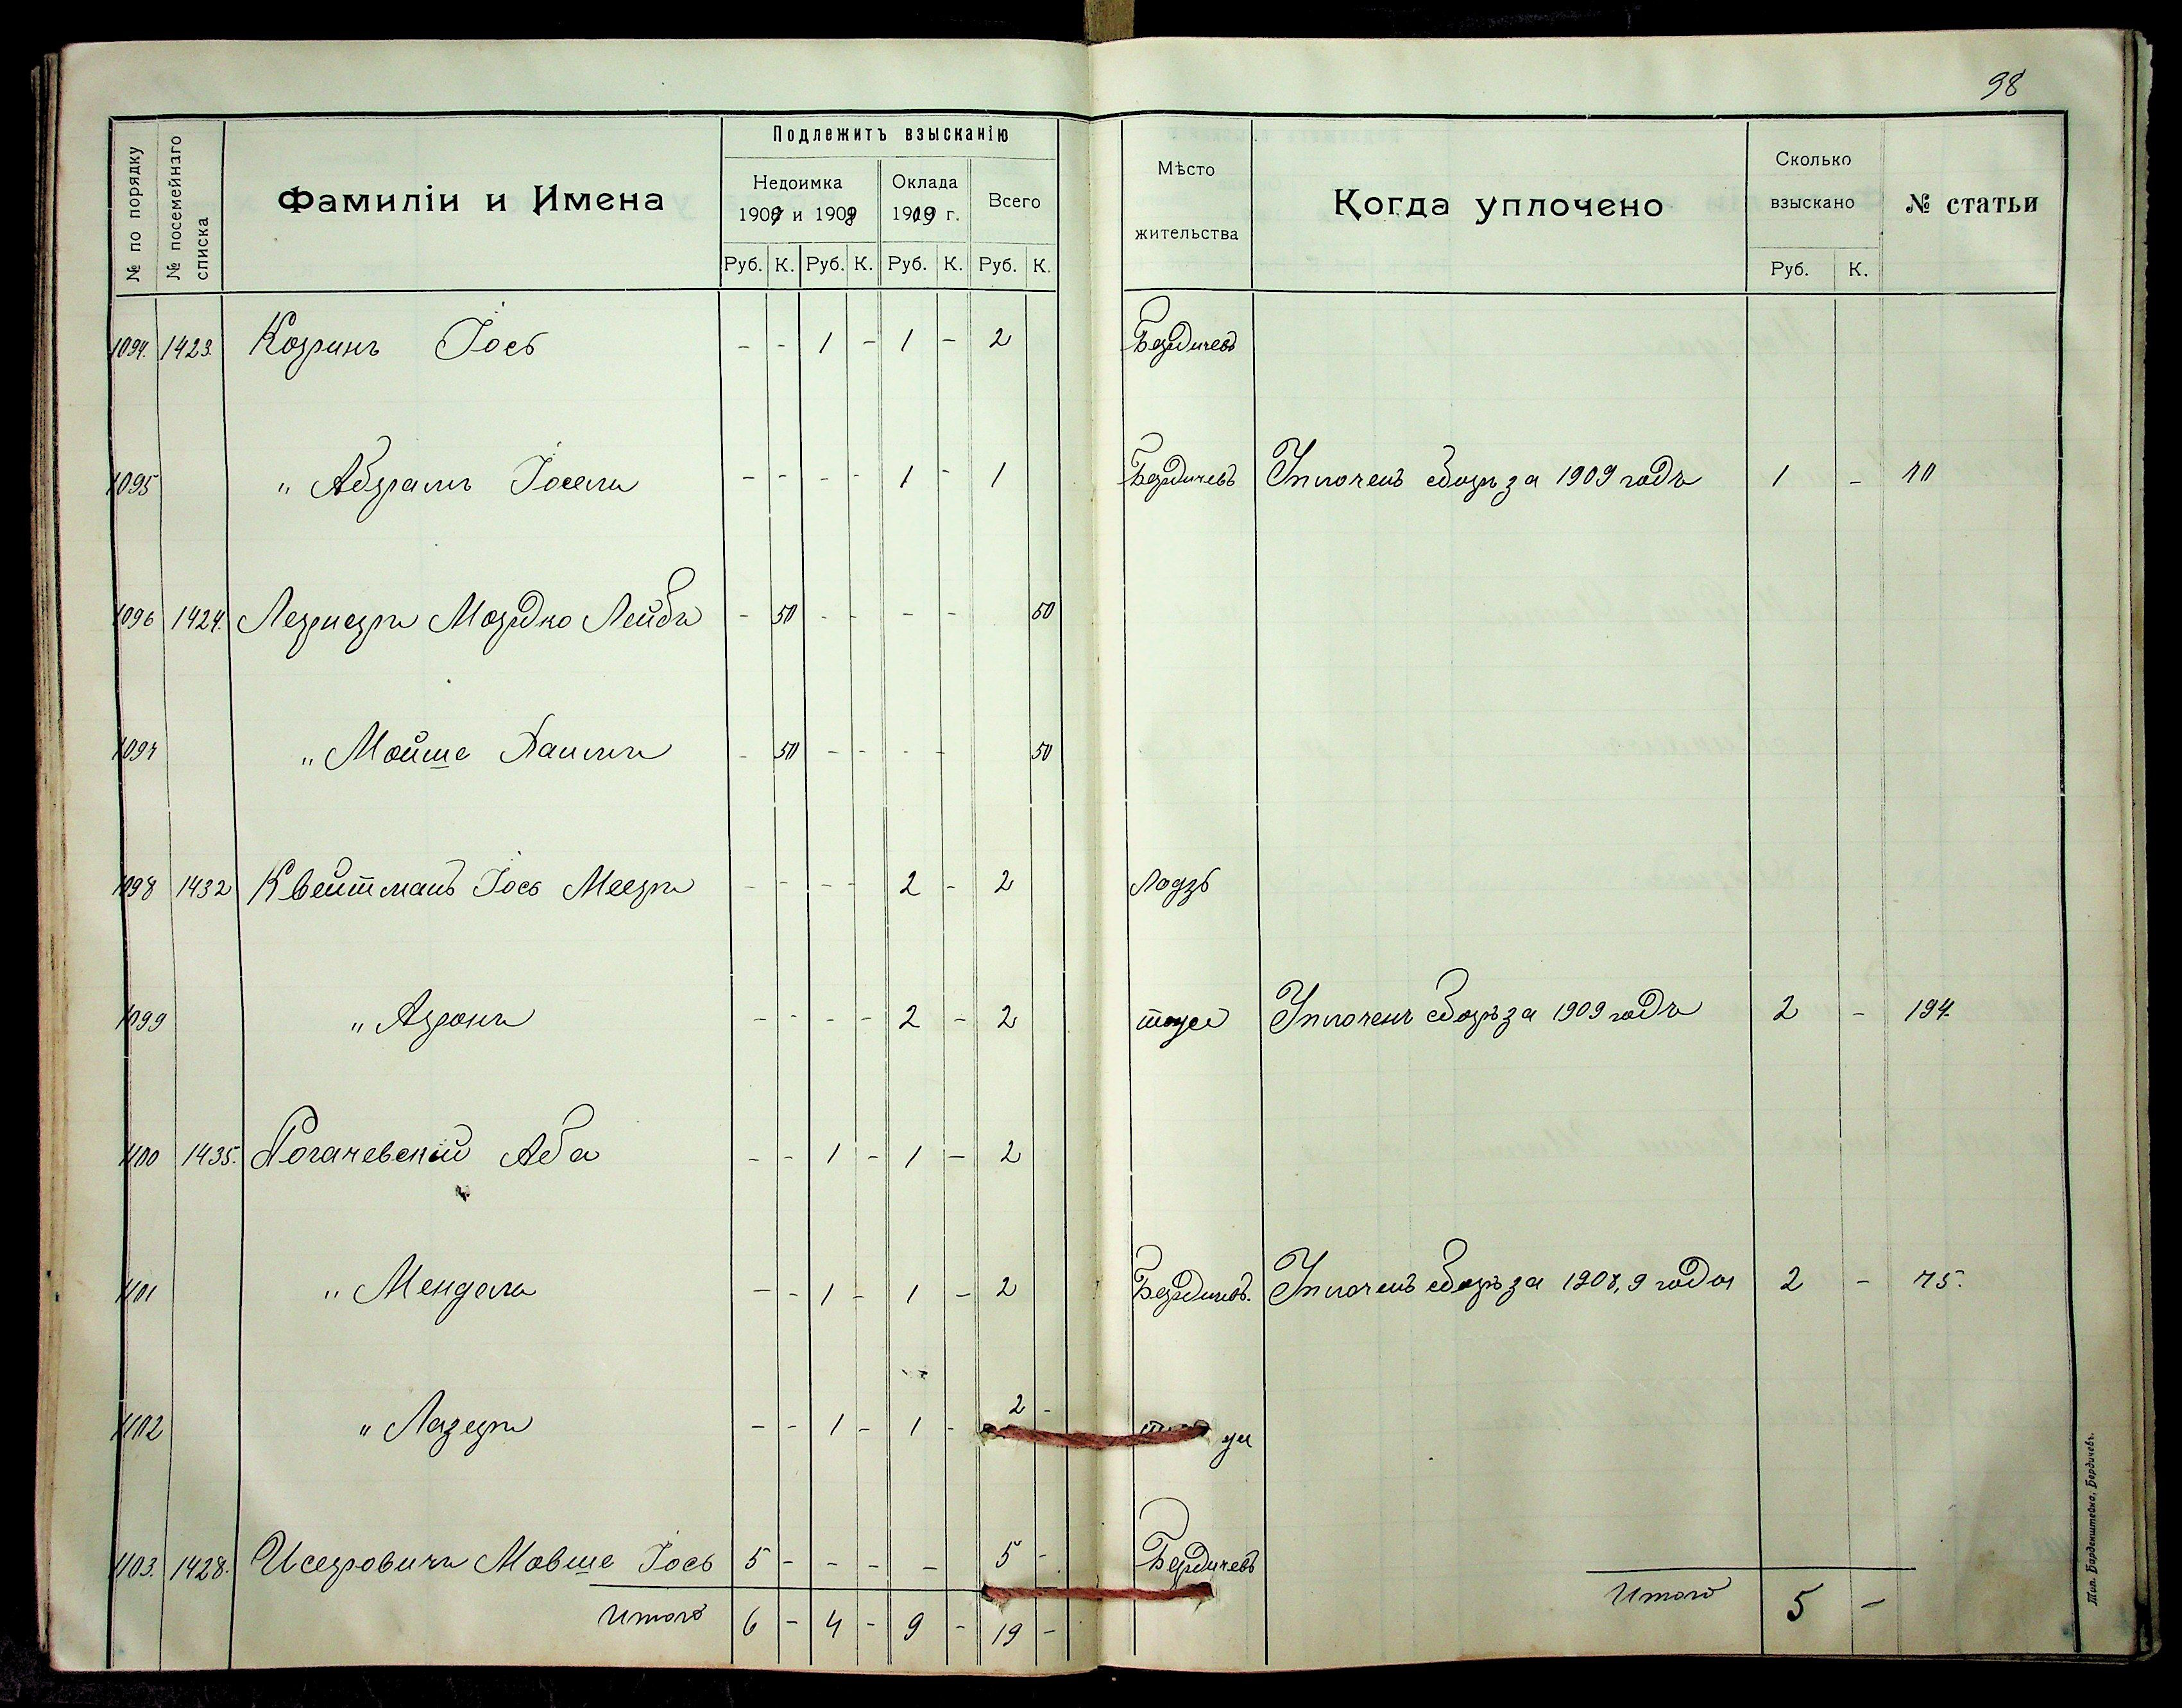 98
№ по порядку
№ посемейнаго списка
Фамиліи и Имена
Подлежитъ взысканію
Недоимка
1907 и 1908
Оклада
1909 г.
Всего
Руб. К. Руб. К. Руб. К. Руб. К.
Мѣсто
жительства
Когда уплочено
Сколько
взыскано
Руб. К.
№ статьи
1094. 1423. Козринъ Іось - - 1 - 1 - 2 Бердичевъ
1095 " Абрамъ Іосель - - - - 1 - 1 Бердичевъ Уплоченъ сборъ за 1909 годъ 1 - 40
1096 1424. Лернеръ Мордко Лейбъ - 50 - - - - 50
1097 " Мойше Хаимъ - 50 - - - - 50
1098 1432 Квейтманъ Іось Мееръ - - - - 2 - 2 Лодзь
1099 " Аронъ - - - - 2 - 2 Уплоченъ сборъ за 1909 годъ 2 - 194.
1100 1435. Рогачевскій Аба - - 1 - 1 - 2
1101 " Мендель - - 1 - 1 - 2 Бердичевъ. Уплоченъ сборъ за 1908, 9 года 2 - 75.
1102 " Лазеръ - - 1 - 1 - 2 -
1103. 1428. Исеровичъ Мовше Іось 5 - - - - 5 - Бердичевъ
Итого 6 - 4 - 9 - 19 -
Итого 5 -
Тип. Барденштейна, Бердичевъ.